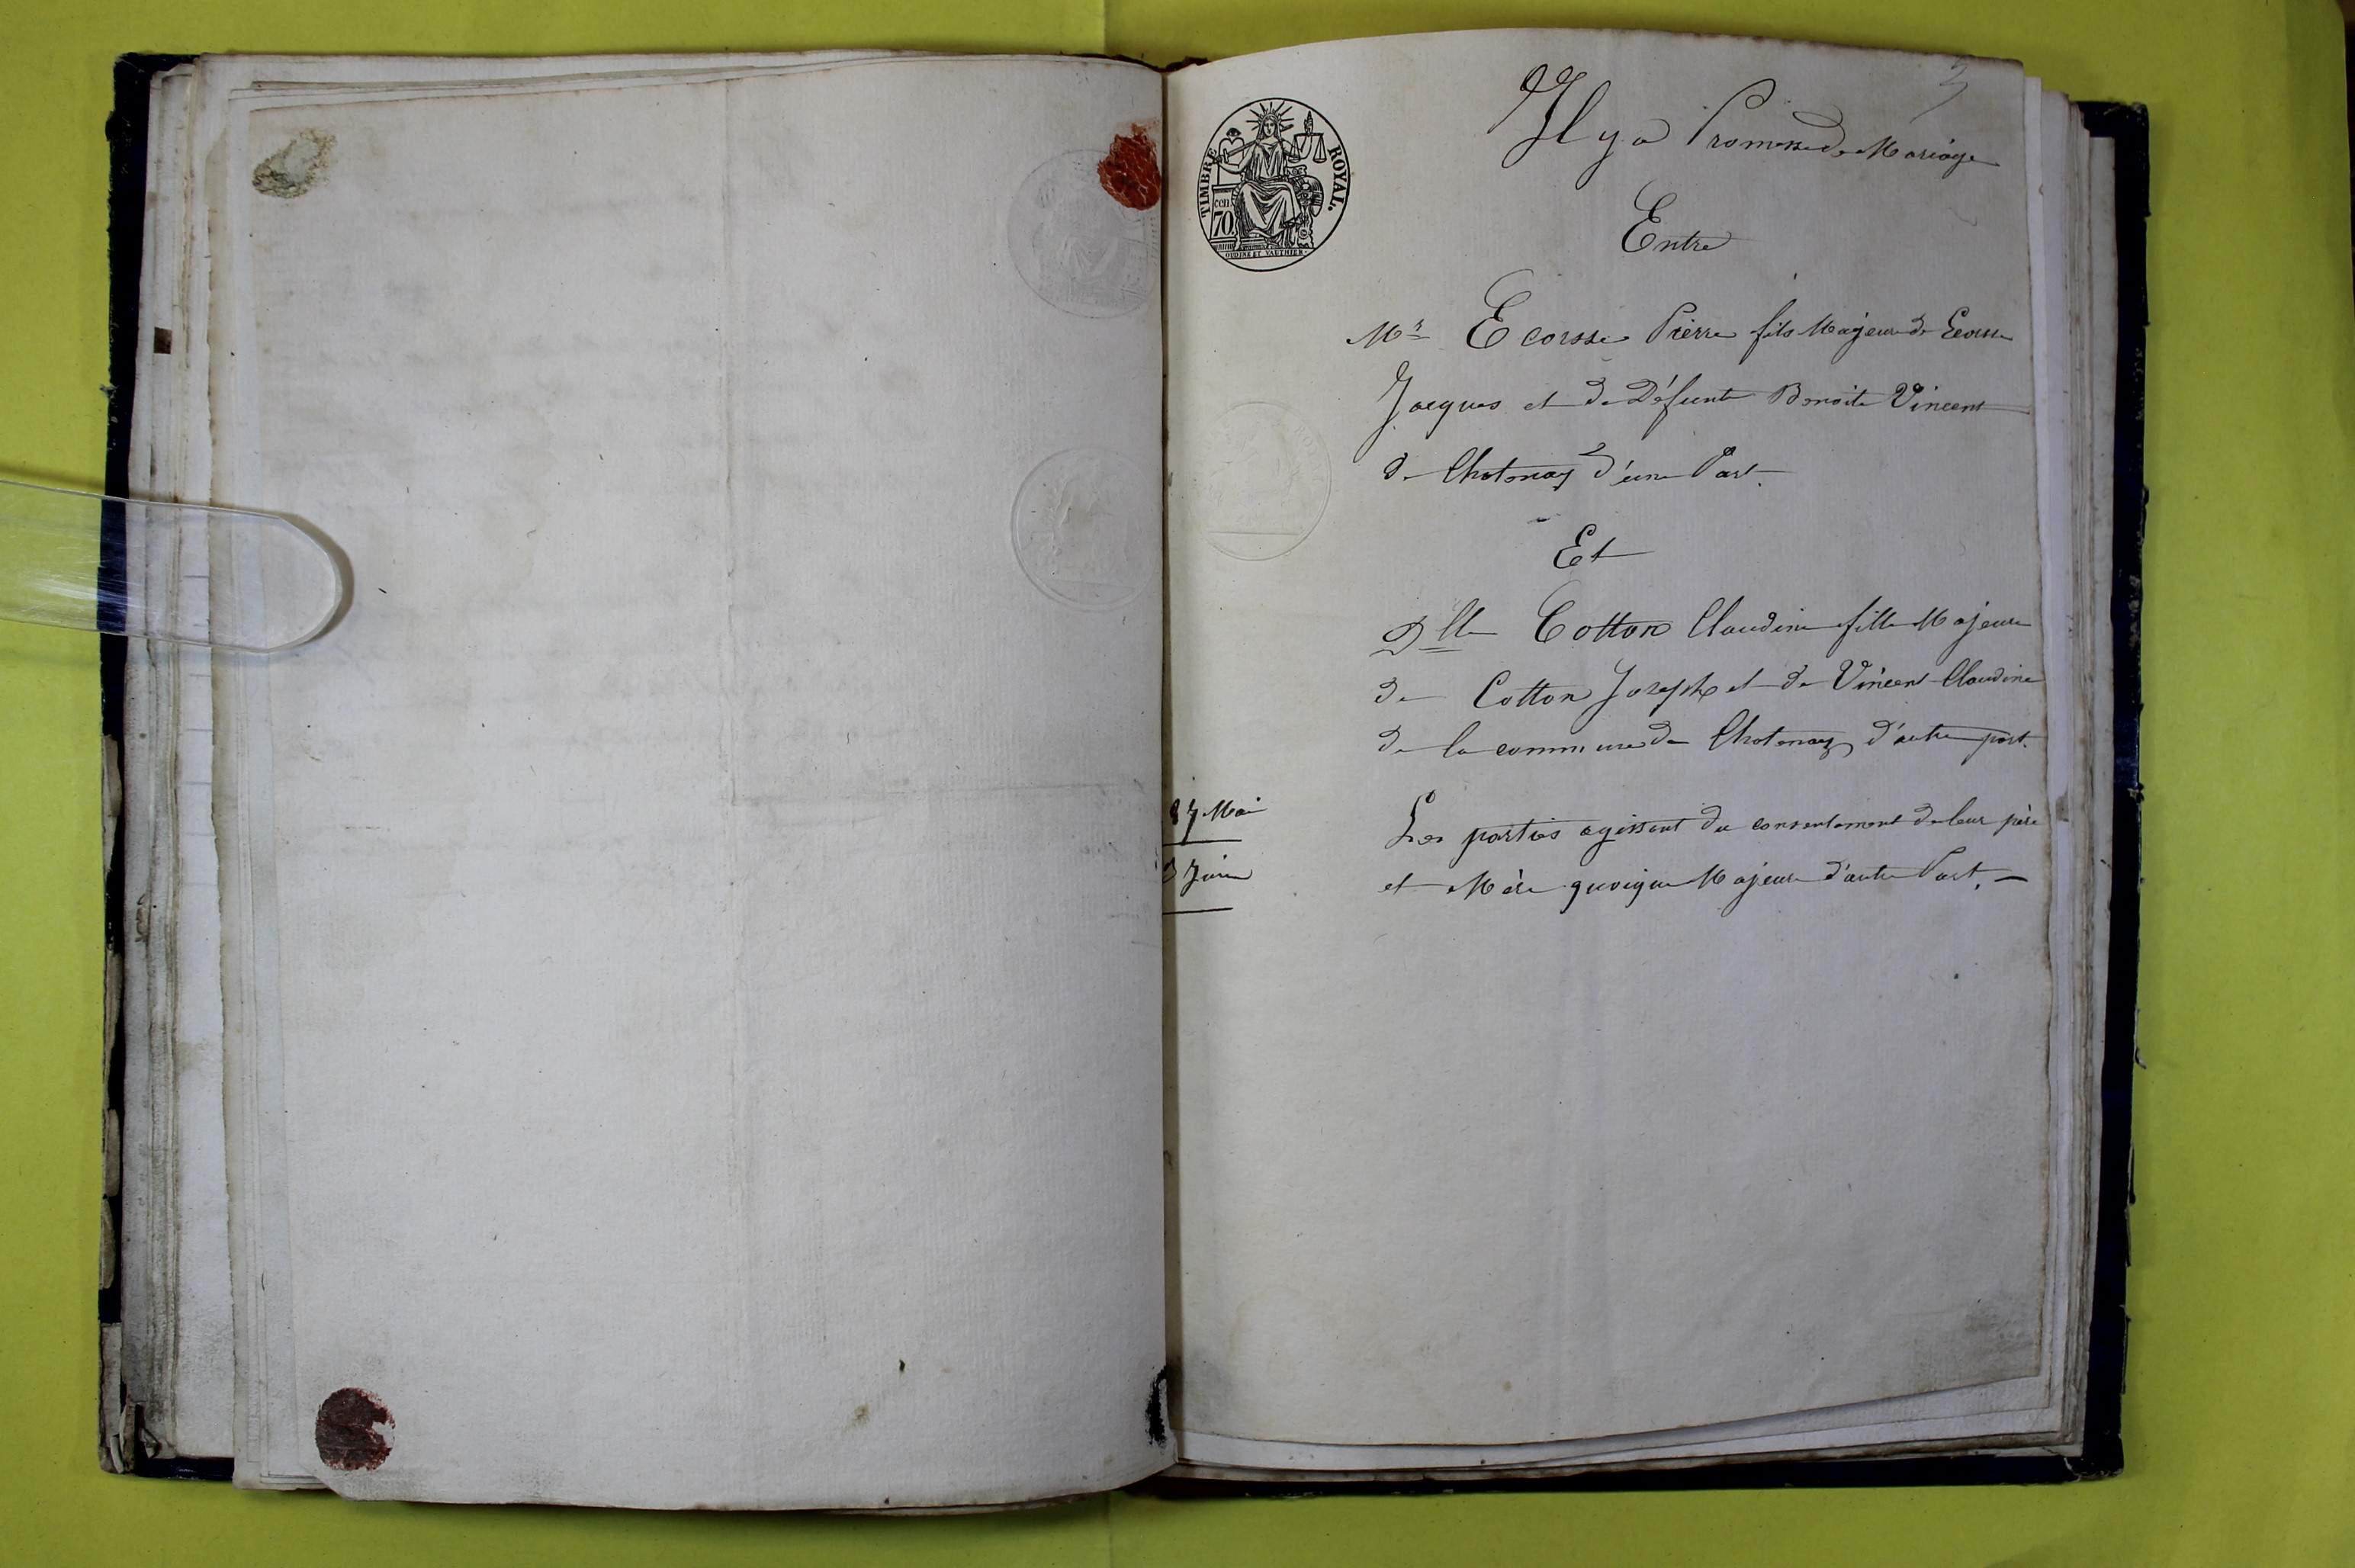 3
TIMBRE ROYAL.
cen
70
OUDINE ET VAUTHIER
Il y a Promesse de Mariage
Entre
Mr Ecorsse Pierre fils Majeur de Ecorsse
Jacques et de Défunte Benoite Vincent
de Chatonay d'une Part.
Et
Dlle Cotton Claudine fille Majeure
de Cotton Joseph et de Vincent Claudine
de la commune de Chatonay d'autre part.
27 Mai
3 Juin
Les parties agissant du consentement de leur père
et Mère quoique Majeure d'autre Part. —